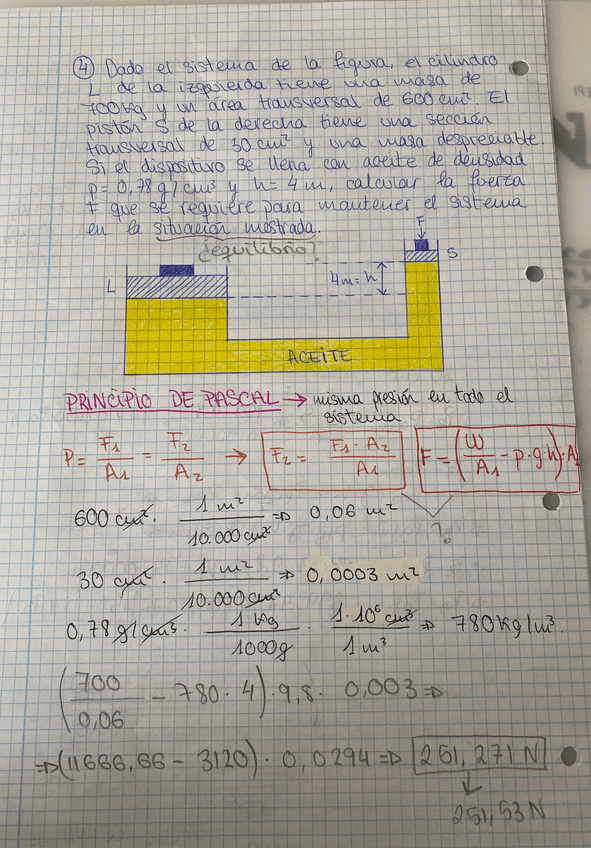 ④ Dado el sistema de la figura, el cilindro
L de la izquierda tiene una masa de
700kg y un área transversal de 600 cm². El
pistón S de la derecha tiene una sección
transversal de 30 cm² y una masa despreciable.
Si el dispositivo se llena con aceite de densidad
ρ = 0,78 g/cm³ y h = 4 m, calcular la fuerza
F que se requiere para mantener el sistema
en la situación mostrada.
¿equilibrio?
F
S
L
4m = h
ACEITE
PRINCIPIO DE PASCAL → misma presión en todo el
sistema
P = F₁/A₁ = F₂/A₂ → F₂ = F₁·A₂/A₁ F = (W/A₁ - ρ·g·h)·A
?
600 cm². 1 m²/10.000 cm² ⇒ 0,06 m²
30 cm² · 1 m²/10.000 cm² ⇒ 0,0003 m²
0,78 g/cm³ · 1 Kg/1000g · 1·10⁶ cm³/1 m³ ⇒ 780 Kg/m³.
(700/0,06 - 780·4)·9,8· 0,003 ⇒
⇒ (11666,66 - 3120) · 0,0294 ⇒ 251,271 N
251,53 N